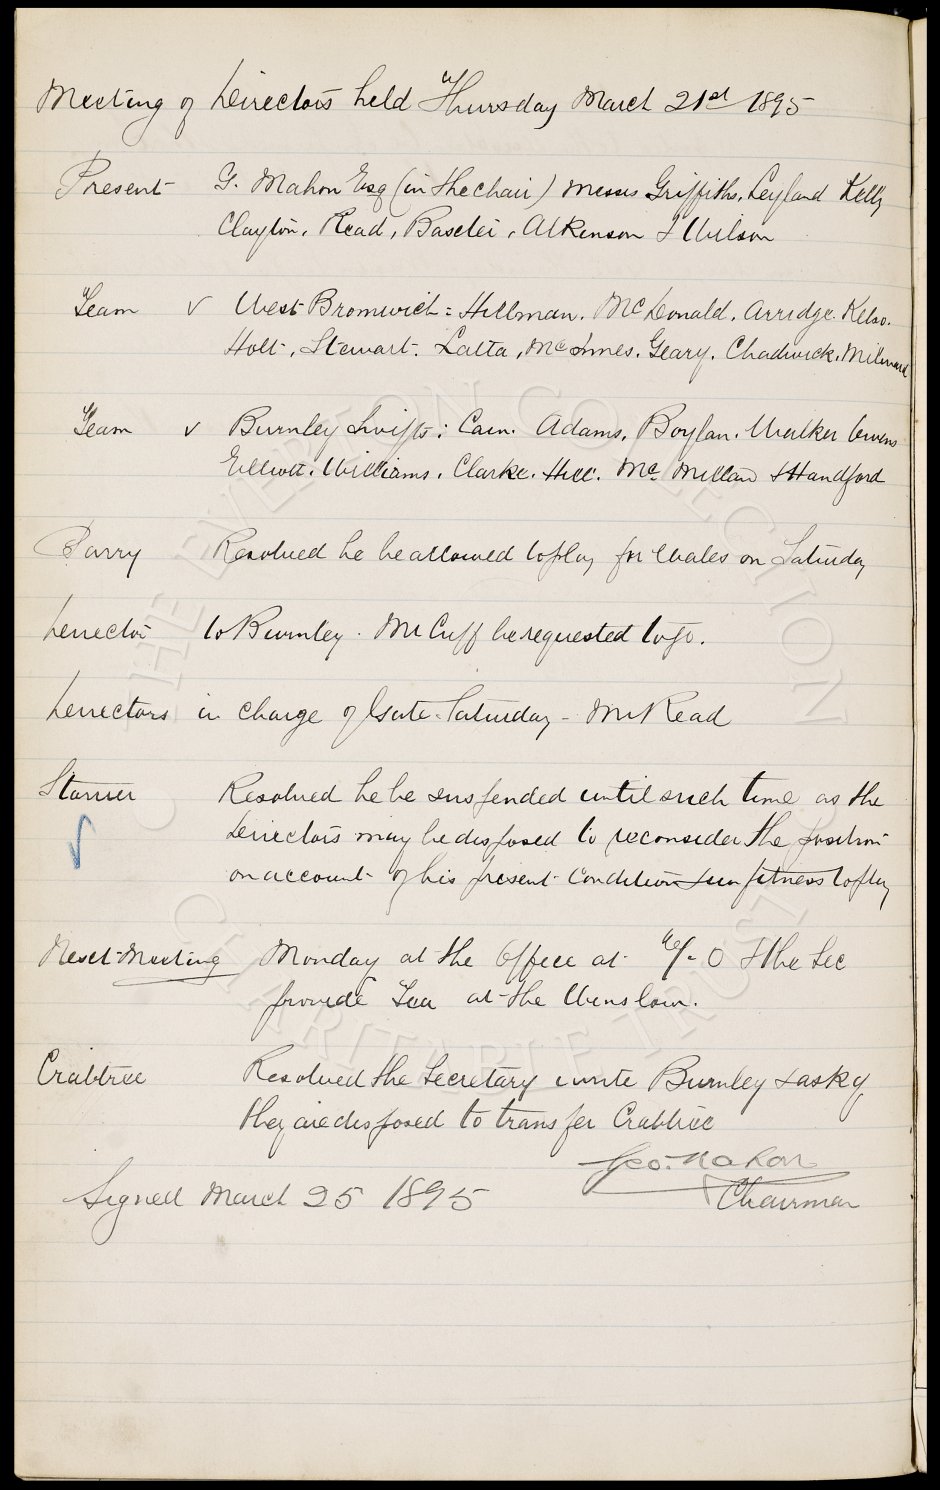 Meeting of Directors held Thursday March 21st 1895
Present G. Mahon Esq (in the chair) Messrs Griffiths, Leyland Kelly
Clayton, Read, Baxter, Atkinson & Wilson
Team v West Bromwich: Hillman. McDonald. Arridge. Kelso.
Holt, Stewart. Latta, McInnes. Geary. Chadwick. Milward
Team v Burnley Swifts: Cain. Adams. Boylan. Walker Owens
Elliott. Williams. Clarke. Hill. McMillan & Handford
Parry Resolved he be allowed to play for Wales on Saturday
Director to Burnley. Mr Cuff be requested to go.
Directors in charge of Gate Saturday - Mr Read
Storrier Resolved he be suspended until such time as the
Directors may be disposed to reconsider the position
on account of his present condition & unfitness to play
Next Meeting Monday at the Office at & the Sec
provide Tea at the Winslow.
Crabtree Resolved the Secretary write Burnley & ask if
they are disposed to transfer Crabtree
Geo. Mahon
Signed March 25 1895 Chairman
THE EVERTON COLLECTION
CHARITABLE TRUST